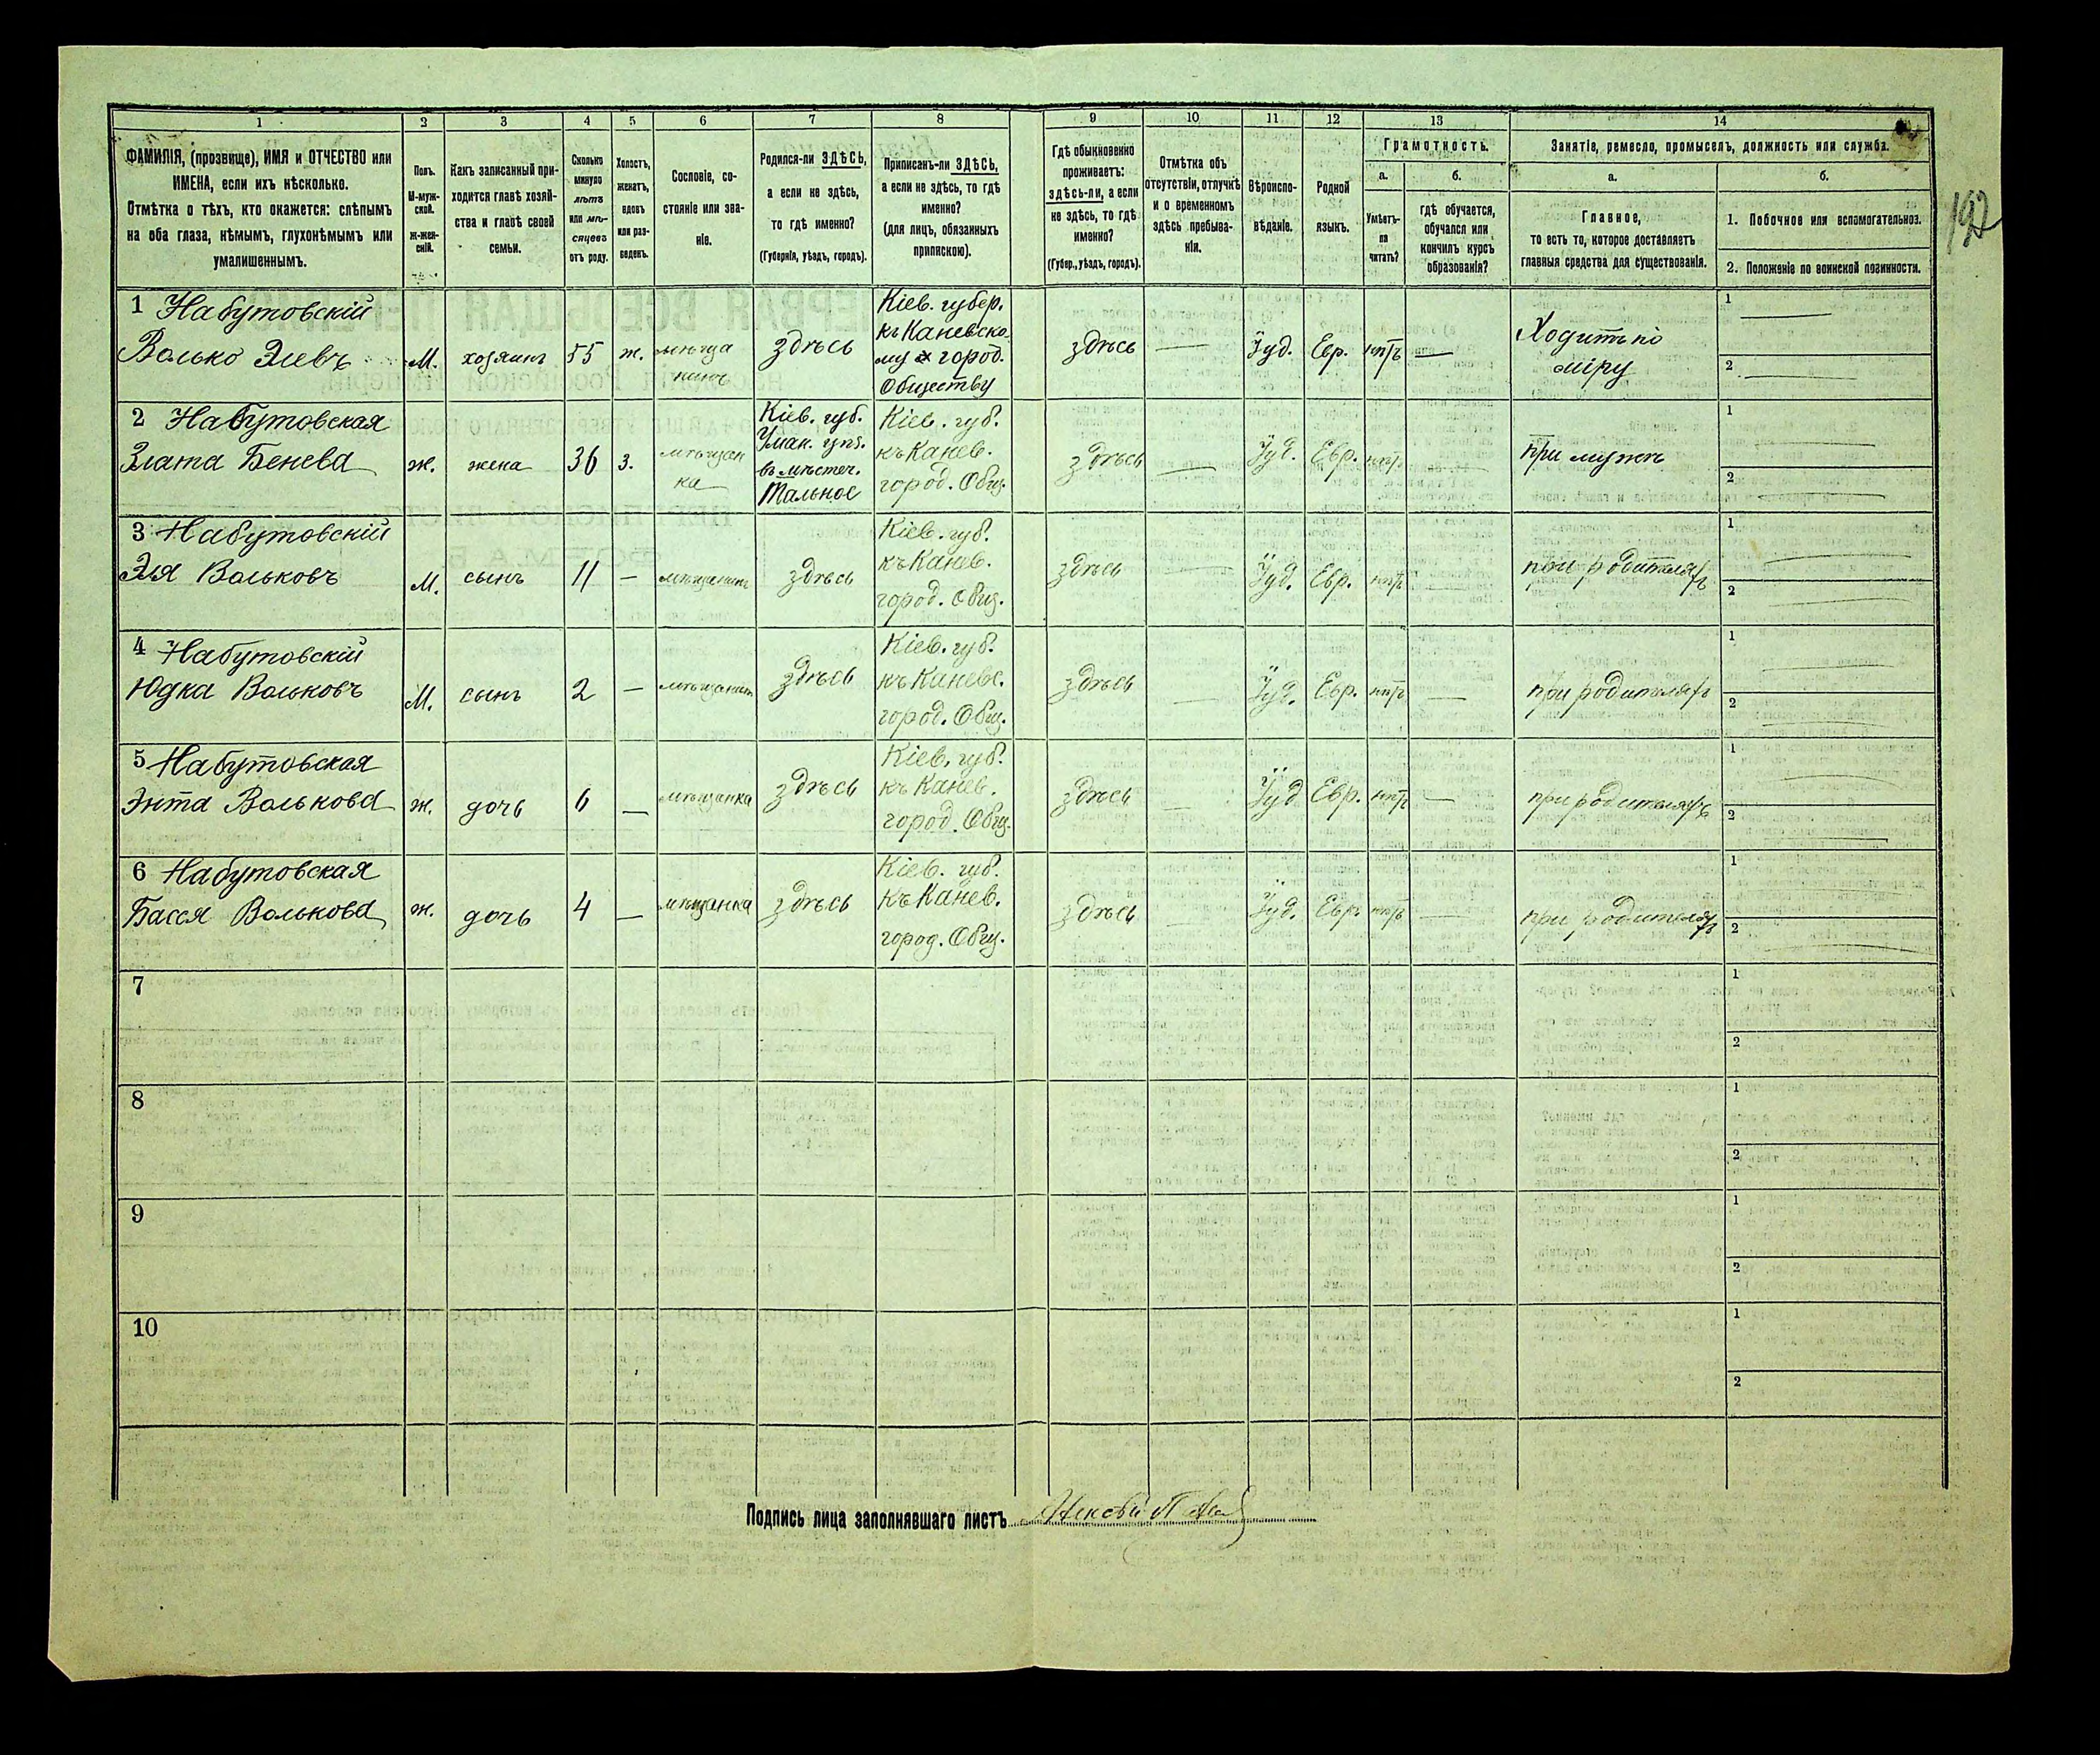 1 2 3 4 5 6 7 8 9 10 11 12 13 14
ФАМИЛІЯ, (прозвище), ИМЯ и ОТЧЕСТВО или
ИМЕНА, если ихъ нѣсколько.
Отмѣтка о тѣхъ, кто окажется: слѣпымъ
на оба глаза, нѣмымъ, глухонѣмымъ или
умалишеннымъ.
Полъ.
М-муж-
ской.
ж-жен-
скій.
Какъ записанный при-
ходится главѣ хозяй-
ства и главѣ своей
семьи.
Сколько
минуло
лѣтъ
или мѣ-
сяцевъ
отъ роду.
Холостъ,
женатъ,
вдовъ
или раз-
веденъ.
Сословіе, со-
стояніе или зва-
ніе.
Родился-ли ЗДѢСЬ,
а если не здѣсь,
то гдѣ именно?
(Губернія, уѣздъ, городъ).
Приписанъ-ли ЗДѢСЬ,
а если не здѣсь, то гдѣ
именно?
(для лицъ, обязанныхъ
припискою).
Гдѣ обыкновенно
проживаетъ:
здѣсь-ли, а если
не здѣсь, то гдѣ
именно?
(Губер., уѣздъ, городъ).
Отмѣтка объ
отсутствіи, отлучкѣ
и о временномъ
здѣсь пребыва-
ніи.
Вѣроиспо-
вѣданіе.
Родной
языкъ.
Грамотность.
а.
Умѣетъ-
ли
читать?
б.
гдѣ обучается,
обучался или
кончилъ курсъ
образованія?
Занятіе, ремесло, промыселъ, должность или служба.
а.
Главное,
то есть то, которое доставляетъ
главныя средства для существованія.
б.
1. Побочное или вспомогательное.
2. Положеніе по воинской повинности.
192
1 Набутовскій
Волько Элевъ
М.
хозяинъ
55
ж.
мѣща
нинъ
здѣсь
Кіев. губер.
къ Каневско
му город.
Обществу
здѣсь
Іуд.
Евр.
нѣтъ
Ходитъ по
міру
1
2
2 Набутовская
Злата Бенева
ж.
жена
36
з.
мѣщан
ка
Кіев. губ.
Уман. уѣз.
въ мѣстеч.
Тальное
Кіев. губ.
къ Канев.
город. Общ.
здѣсь
Іуд.
Евр.
нѣтъ
при мужѣ
1
2
3 Набутовскій
Эля Вольковъ
М.
сынъ
11
мѣщанинъ
здѣсь
Кіев. губ.
къ Канев.
город. Общ.
здѣсь
Іуд.
Евр.
нѣтъ
при родителяхъ
1
2
4 Набутовскій
Юдка Вольковъ
М.
сынъ
2
мѣщанинъ
здѣсь
Кіев. губ.
къ Каневс.
город. Общ.
здѣсь
Іуд.
Евр.
нѣтъ
при родителяхъ
1
2
5 Набутовская
Энта Волькова
ж.
дочь
6
мѣщанка
здѣсь
Кіев. губ.
къ Канев.
город. Общ.
здѣсь
Іуд
Евр.
нѣтъ
при родителяхъ
1
2
6 Набутовская
Бася Волькова
ж.
дочь
4
мѣщанка
здѣсь
Кіев. губ.
къ Канев.
город. Общ.
здѣсь
Іуд.
Евр.
нѣтъ
при родителяхъ
1
2
7
1
2
8
1
2
9
1
2
10
1
2
Подпись лица заполнявшаго листъ